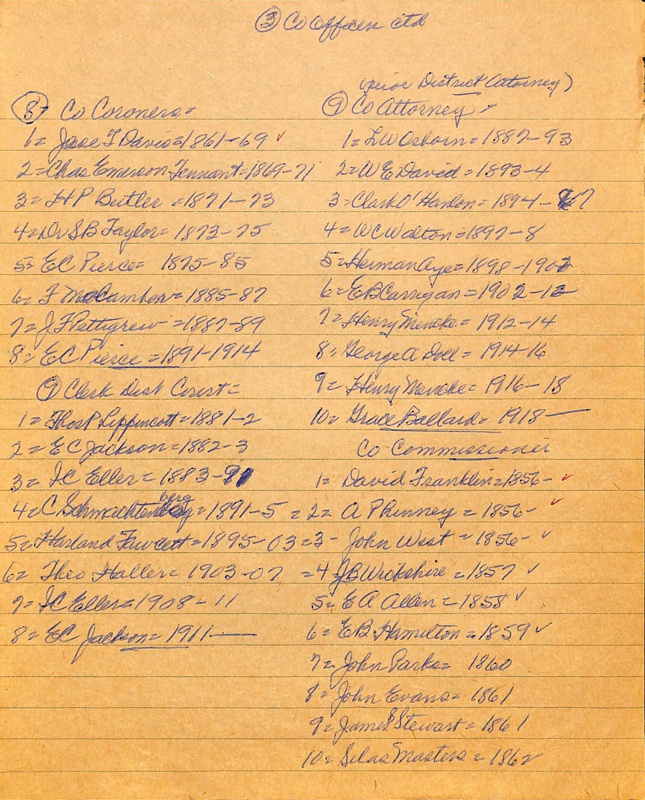 ③ Co Officers ctd
⑧ Co Coroners=
1= Jase T Davis=1861-69 ✓
2=Chas Emerson Tennant=1869-71
3= H P Butler =1871-73
4=Dr S B Taylor= 1873-75
5= E C Pierce= 1875-85
6= F = 1885-87
7= J F Pettygrew =1887-89
8= E C Pierce =1891-1914
⑨ Clerk Dist Court=
1= Thos P Lippincott=1881-2
2= E C Jackson=1882-3
3= I C Eller = 1883-91
4=C Schmachtenberg=1891-5
5= Harland Fawcett=1895-03
6= Theo Haller= 1903-07
7= I C Eller= 1908-11
8= E C Jackson= 1911——
(prior District Attorney)
⑨ Co Attorney=
1= L W Osborn= 1887-93
2= W E David = 1893-4
3= Clark O'Hanlon= 1894-7
4= W C Walton=1897-8
5= Herman Aye= 1898-1902
6= E B Carrigan= 1902-12
7= Henry Mencke= 1912-14
8= George A Doll = 1914-16
9= Henry Mencke= 1916-18
10= Grace Ballard= 1918——
Co Commissioner
1= David Franklin=1856- ✓
=2= A Phinney= 1856- ✓
=3- John West =1856- ✓
=4 J B Wickshire =1857 ✓
5= E A Allen = 1858 ✓
6= E B Hamilton =1859 ✓
7= John Parks= 1860
8= John Evans= 1861
9= James S Stewart= 1861
10= Silas Masters= 1862